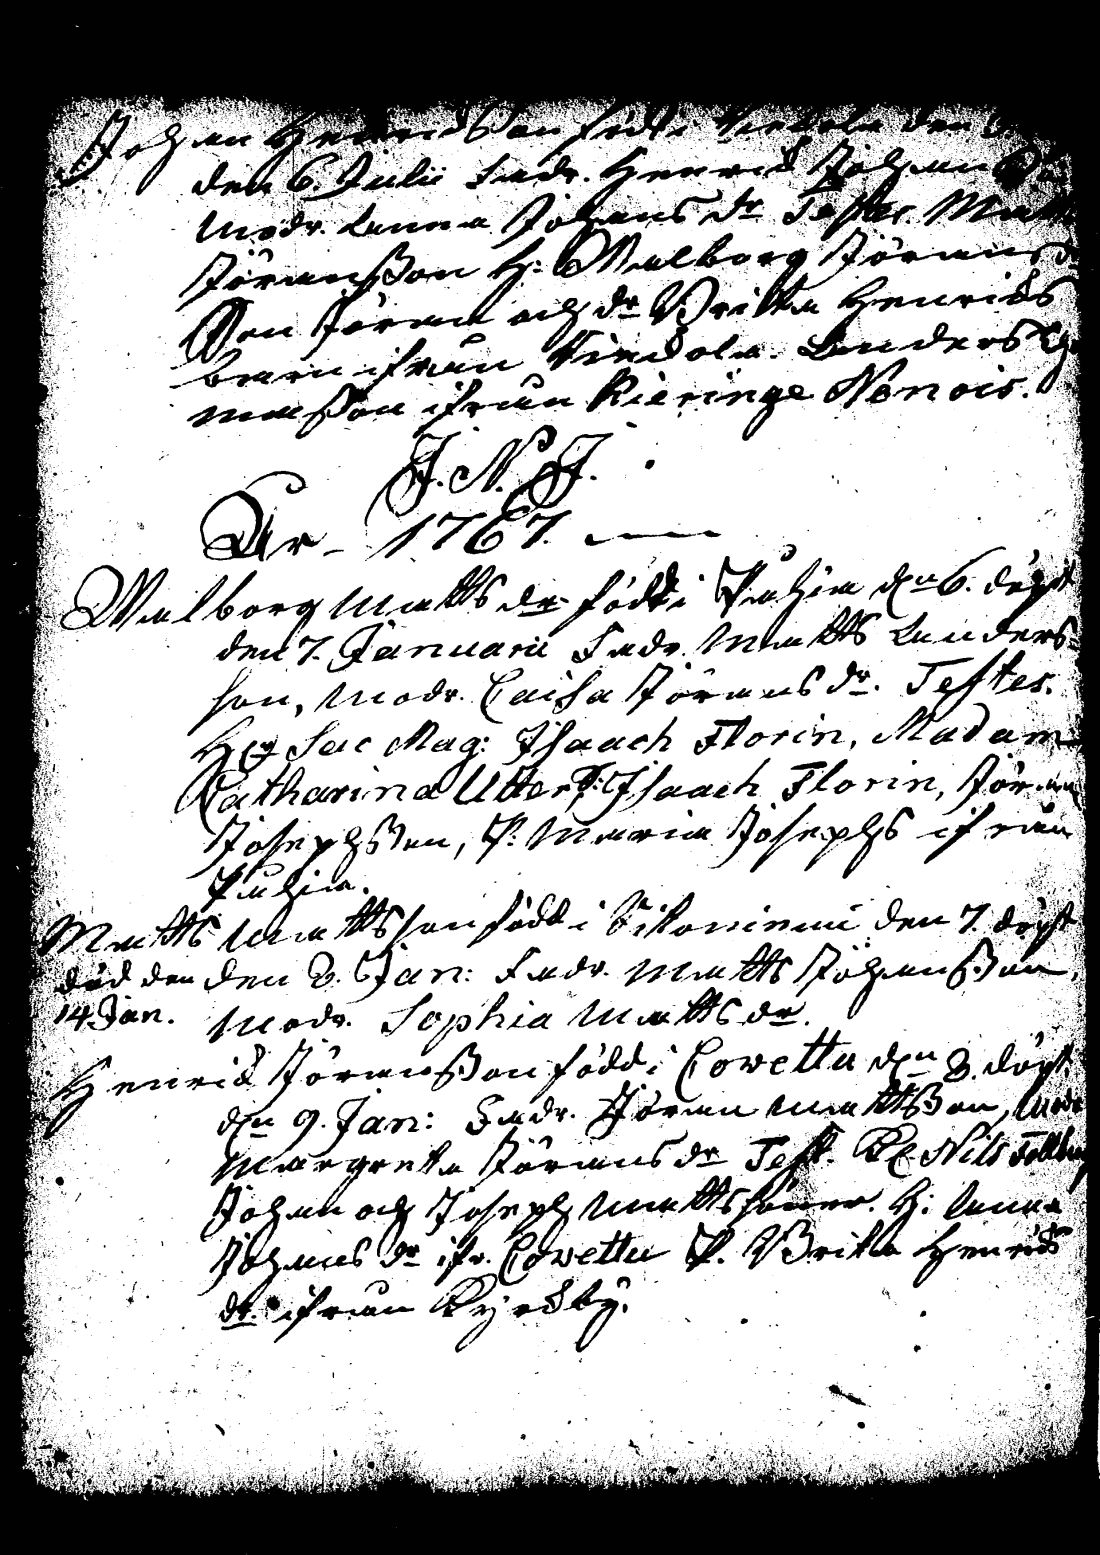 Johan Henricsson född i den
den 6. Julii Fadr. Henric Johansson
Modr. Anna Johans dr Testes Matts
Jöransson H: Walborg Jörans dr
Son Jöran och dr Britta Henrics
barn ifrån Tiendola. Anders Tho
masson ifrån Kieringe Nenois.
J. N. J.
År - 1767.
Walborg Matts dr född i Puhja den 6. döpt
den 7. Januarii Fadr. Matts Anders-
son, Modr. Caisa Jörans dr. Testes.
Hr Sac Mag: Isaach Florin, Madam
Catharina Utter, J: Isaach Florin, Jöran
Josephsson, P: Maria Josephs ifrån
Puhja.
Matts Mattsson född i den 7. döpt
död den den 8. Jan: Fadr. Matts Johansson,
14. Jan. Modr. Sophia Matts dr.
Henric Jöransson född i Cowetta den 8. döpt
den 9. Jan: Fadr. Jöran Mattsson, Modr
Margreta Jörans dr Test. Nils
Johan och Joseph Mattssöner. H: Anna
Johans dr ifr. Cowetta P. Britta Henrics
dr. ifrån Kyrckby.